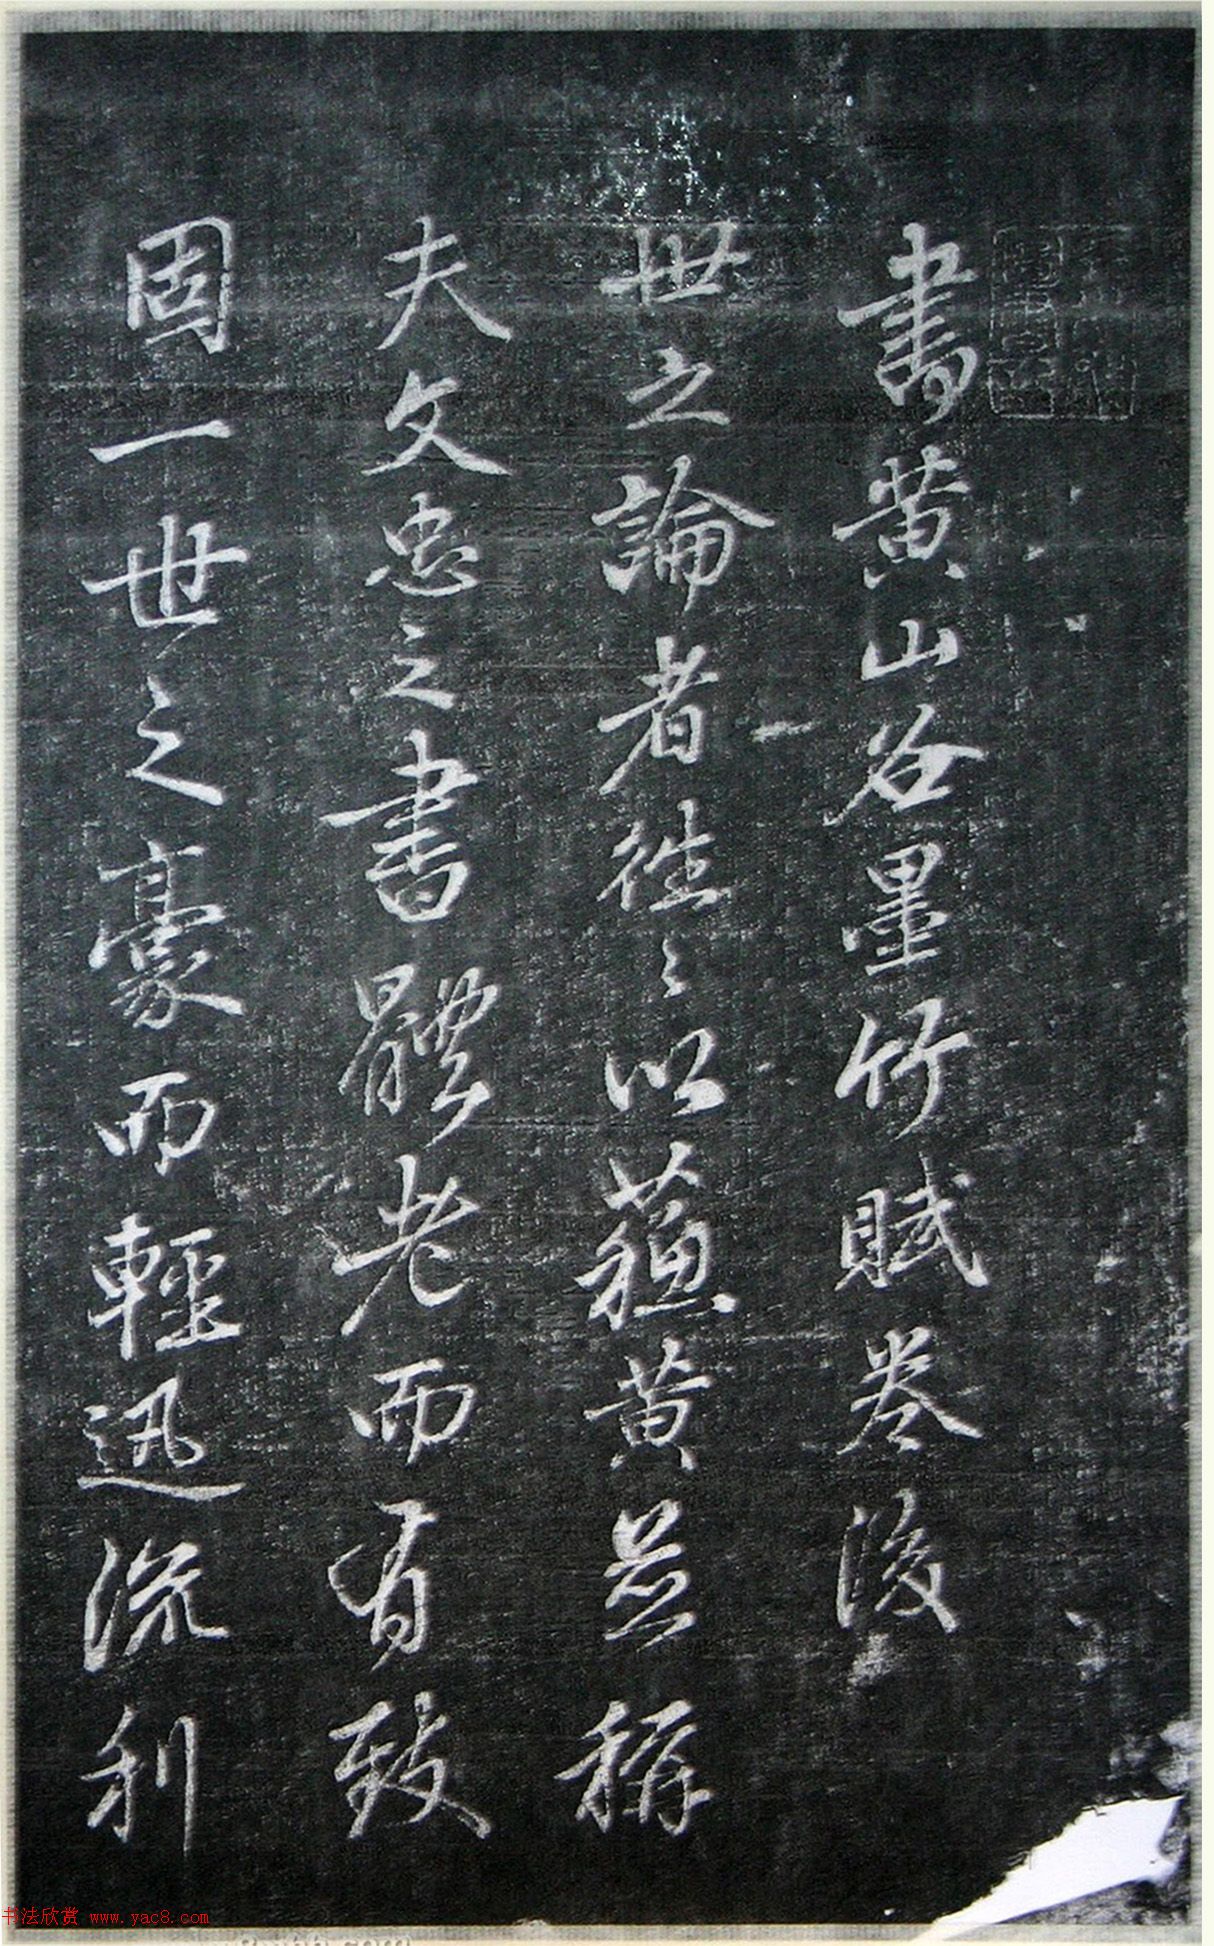 書黃山谷墨竹賦卷後
世之論者往々以蘓黃並稱
夫文忠之書體老而有致
固一世之豪而輕迅流利
书法欣赏 www.yac8.com